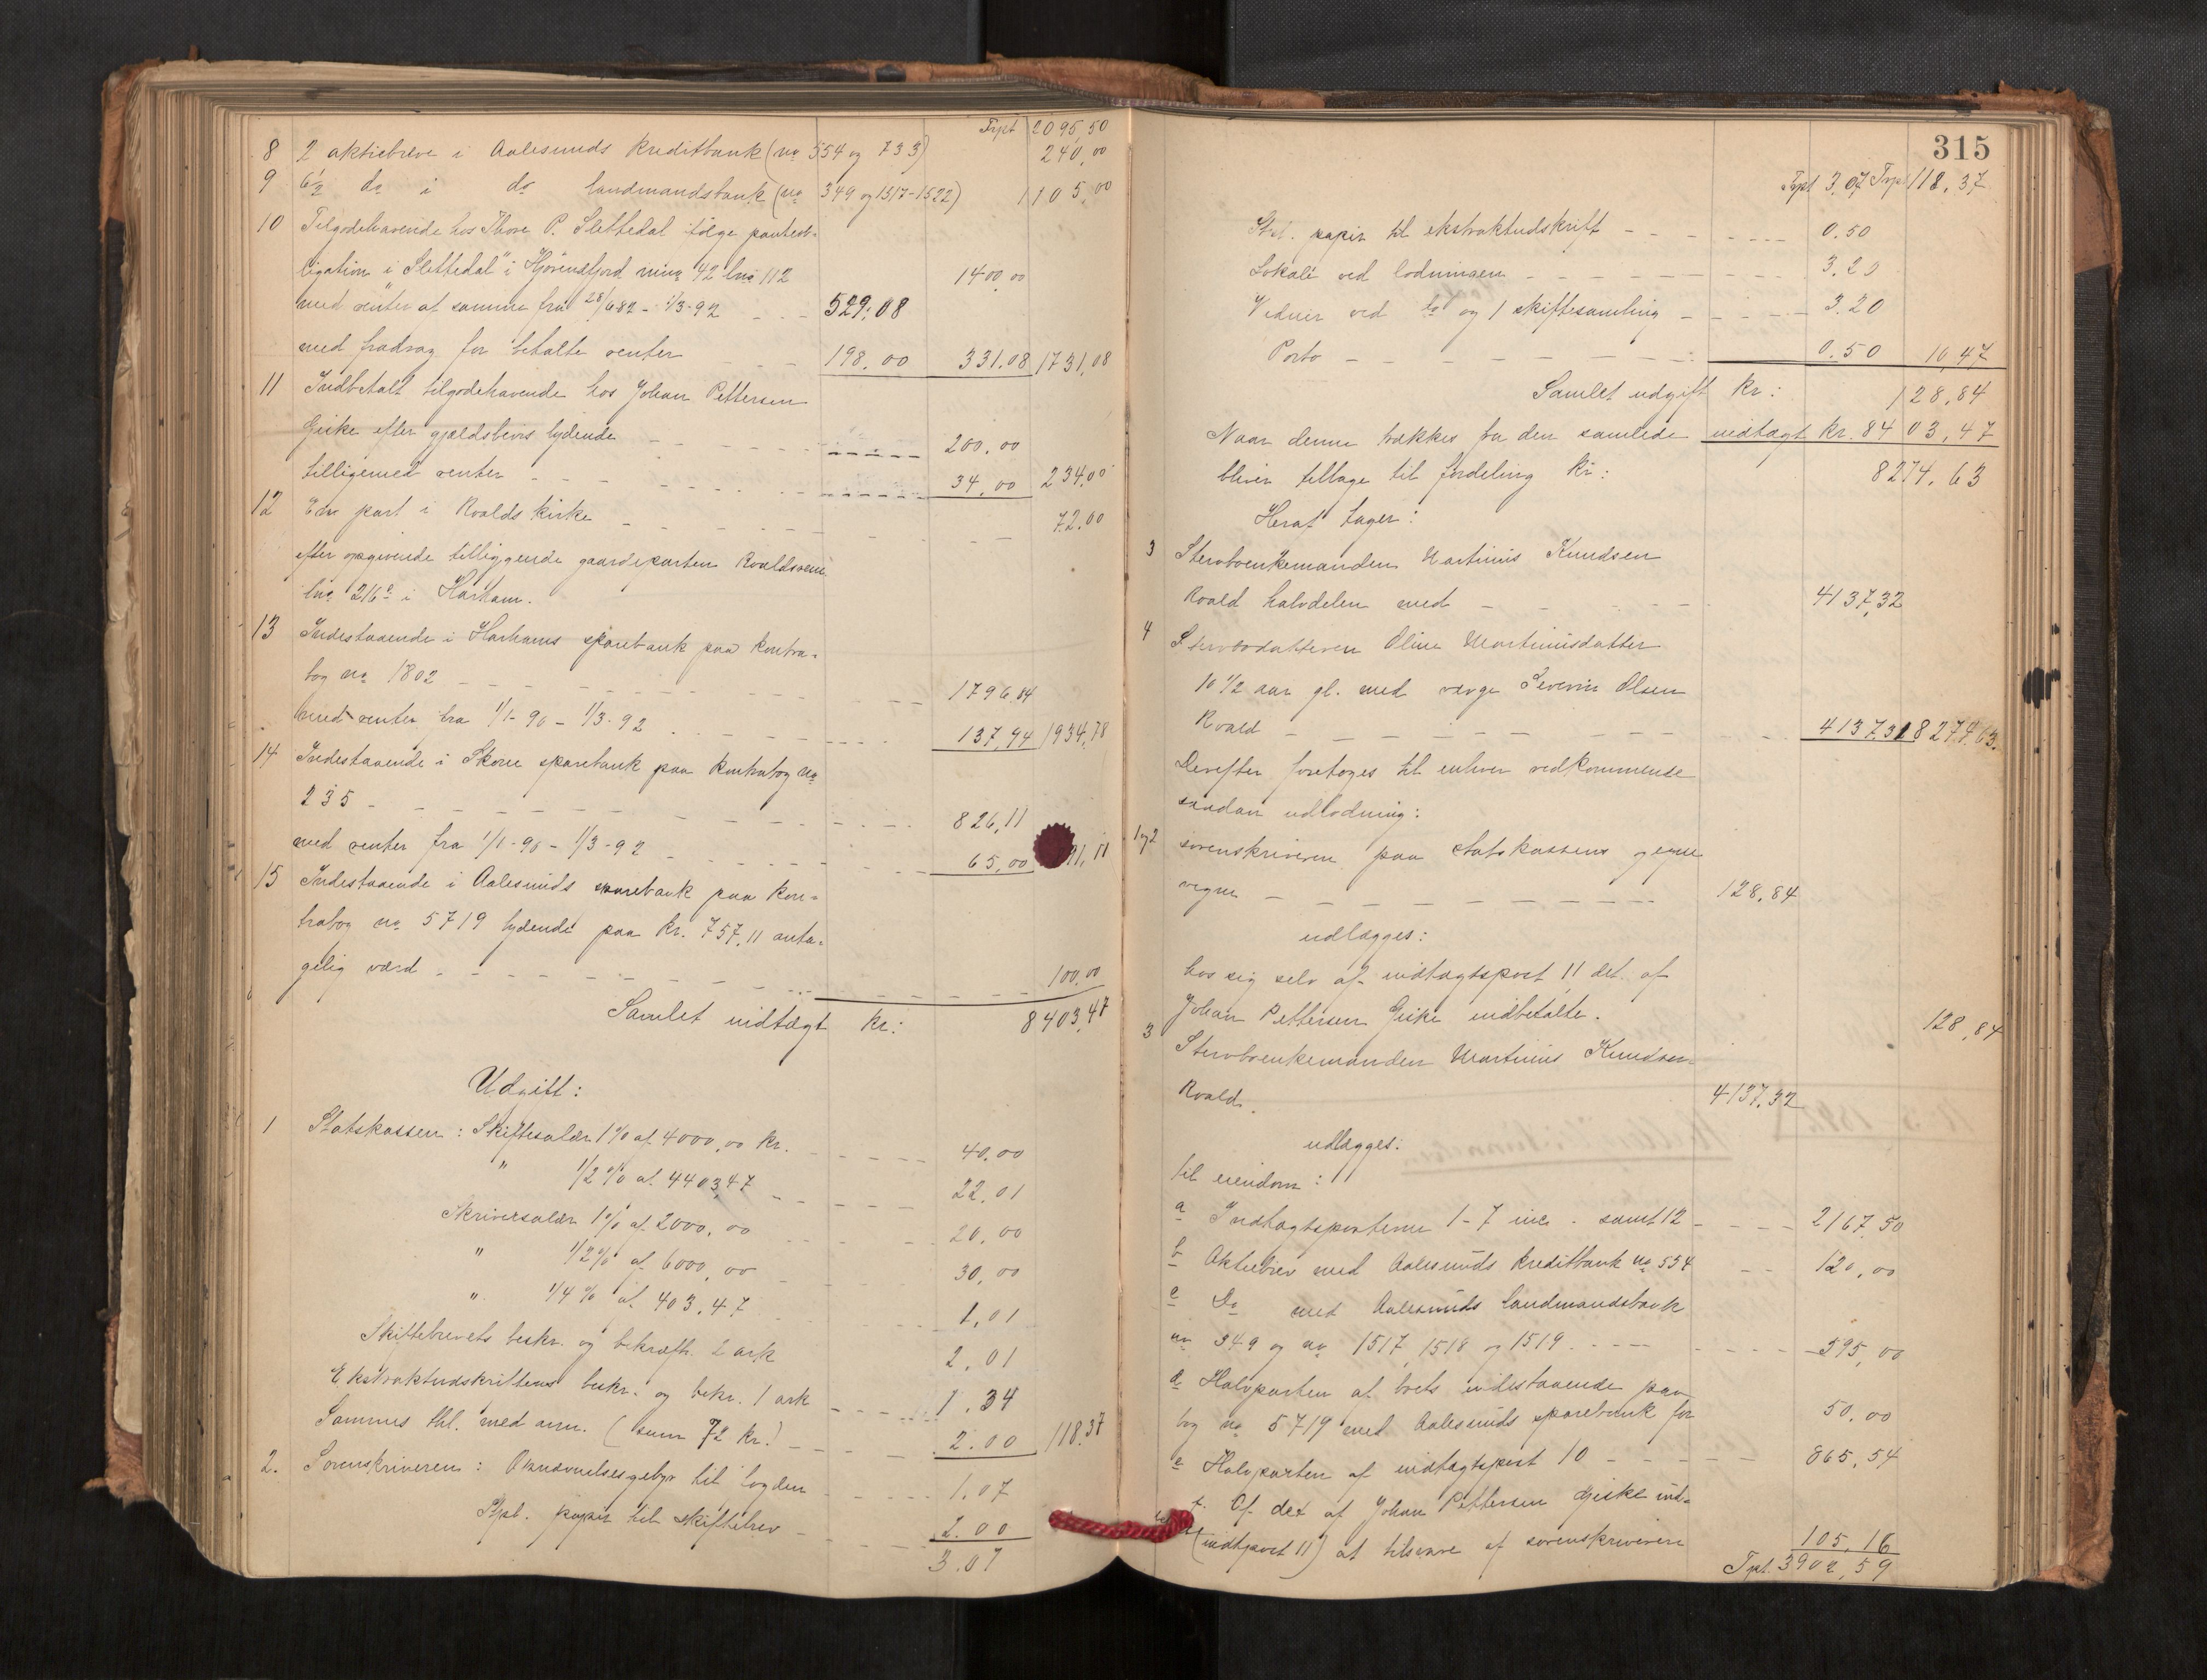 Trpt 2095,50
8 2 aktiebreve i Aalesunds Kreditbank (no 554 og 733) 240,00
9 6½ do i do landmandsbank (no 349 og 1517-1522) 1105,00
10 Tilgodehavende hos Thore P. Slettedal ifølge panteob-
ligation i "Slettedal" i Hjørendfjord mno 42 lno 112 1400,00
med renter af samme fra 28/6 82 - 1/3-92 - - - 529,08
med fradrag for betalte renter 198,00 331,08 1731,08
11 Indbetalt tilgodehavende hos Johan Pettersen
Giske efter gjældsbevis lydende - - - 200,00
tilligemed renter - - - 34,00 234,00
12 En part i Roalds kirke - - - 72.00
efter opgivende tilliggende gaardsparten Roaldsnes
lno 216 i Harham.
13 Indestaaende i Harhams sparebank paa kontra-
bog no 1802 - - - 1796,84
med renter fra 1/1-90 - 1/3-92 - - - 137,94 1934,78
14 Indestaaende i Skoue sparebank paa kontrabog no
235 - - - 826,11
med renter fra 1/1-90 - 1/3-92 - - - 65,00 91,11
15 Indestaaende i Aalesunds sparebank paa kon-
trabog no 5719 lydende paa kr. 757,11 anta-
gelig værd - - - 100,00
Samlet indtægt kr: 8403,47
Udgift:
1 Statskassen: Skiftesalær 1% af 4000,00 kr. - - - 40,00
" 1/2% af 4403,47 - - - 22.01
Skriversalær 1% af 2000,00 - - - 20,00
" 1/2% af 6000,00 - - - 30,00
" 1/4% af 403,47 - - - 1,01
Skiftebrevets beskr. og bekræft. 2 ark 2.01
Ekstraktudskriftens beskr. og bekr. 1 ark - - - 1.34
Sammes thl. med ann. (sum 72 kr.) - - - 2.00 118.37
2. Sorenskriveren: Opnævnelsesgebyr til fogden - - - 1.07
Stpl. papir til skiftebrev - - - 2.00
3.07
315
Trpt 3,07 Trpt 118,37
Stpl. papir til ekstraktudskrift - - - 0.50
Lokale ved lodningen - - - 3.20
Vidner ved do og 1 skiftesamling - - - 3.20
Porto - - - 0.50 10,47
Samlet udgift kr: 128,84
Naar denne trækkes fra den samlede indtægt kr. 8403,47
bliver tilbage til fordeling kr: 8274,63
Heraf tager:
3 Stervboenkemanden Martinus Knudsen
Roald halvdelen med - - - 4137,32
4 Stervbodatteren Oline Martinusdatter
10 1/2 aar gl. med værge Severin Olsen
Roald - - - 4137,31 8274,63.
Derefter foretoges til enhver vedkommende
saadan udlodning:
1 og 2 sorenskriveren paa statskassens og egne
vegne - - - 128,84
udlægges:
hos sig selv af indtægtspost 11 det af
Johan Pettersen Giske indbetalte. 128,84
3 Stervboenkemanden Martinus Knudsen
Roald. 4137,32
udlægges:
til eiendom:
a Indtægtsposterne 1-7 inc. samt 12 - - - 2167,50
b Aktiebrev med Aalesunds kreditbank no 554 - - 120,00
c Do med Aalesunds landmandsbank
no 349 og no 1517, 1518 og 1519. - - - 595,00
d Halvparten af boets indestaaende paa
bog no 5719 med Aalesunds sparebank for 50,00
e Halvparten af indtægtspost 10 - - - 865,54
f. Af det af Johan Pettersen Giske ind-
(indtpost 11) at tilsvare af sorenskriveren 105,16
Trpt. 3902,59